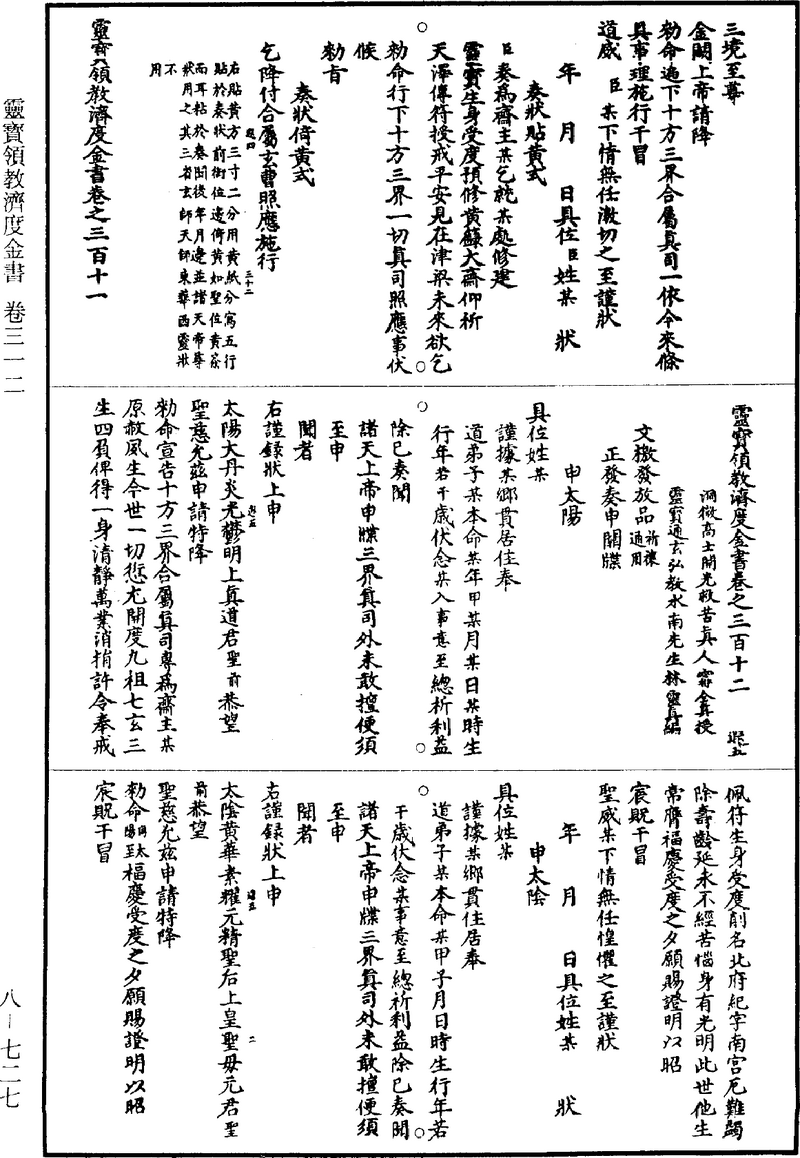 三境至尊
金闕上帝請降
勑命遍下十方三界合屬真司一依今來條
具事理施行干冒
道威　臣某下情無任激切之至謹狀
年　月　日具位臣姓某　狀
奏狀貼黃式
臣奏為齋主某乞就某處修建
靈寶生身受度預修黃籙大齋仰祈
天澤傳符授戒平安見在津梁未來欲乞
勑命行下十方三界一切真司照應事伏
候
勑旨
奏狀倚黃式
乞降付合屬玄曹照應施行
右貼黃方三寸二分用黃紙分寫五行
貼於奏狀前銜位邊倚黃如聖位黃簽
而耳粘於奏聞後年月邊並諸天帝尊
狀用之其三省玄師天師東華西靈狀
不
用
靈寶領教濟度金書卷之三百十一
靈寶領教濟度金書卷之三百十二
洞微高士開光救苦真人甯全真授
靈寶通玄弘教水南先生林靈真編
文檄發放品　祈禳通用
正發奏申關牒
申太陽
具位姓某
謹據某鄉貫居住奉
道弟子某本命某年甲某月某日某時生
行年若干歲伏念某入事意至總祈利益
除已奏聞
諸天上帝申牒三界真司外未敢擅便須
至申
聞者
右謹錄狀上申
太陽大丹炎光鬱明上真道君聖前恭望
聖慈允茲申請特降
勑命宣告十方三界合屬真司專為齋主某
原赦夙生今世一切愆尤開度九祖七玄三
生四負俾得一身清靜萬業消揃許令奉戒
佩符生身受度削名北府紀字南宮厄難蠲
除壽齡延永不經苦惱身有光明此世他生
常膺福慶受度之夕願賜證明以昭
宸貺干冒
聖威某下情無任惶懼之至謹狀
年　月　日具位姓某　狀
申太陰
具位姓某
謹據某鄉貫住居奉
道弟子某本命某甲子月日時生行年若
干歲伏念某事意至總祈利益除已奏聞
諸天上帝申牒三界真司外未敢擅便須
至申
聞者
右謹錄狀上申
太陰黃華素耀元精聖后上皇聖母元君聖
前恭望
聖慈允茲申請特降
勑命同太陽至福慶受度之夕願賜證明以昭
宸貺干冒
靈寶領教濟度金書　卷三一二
八－七二七